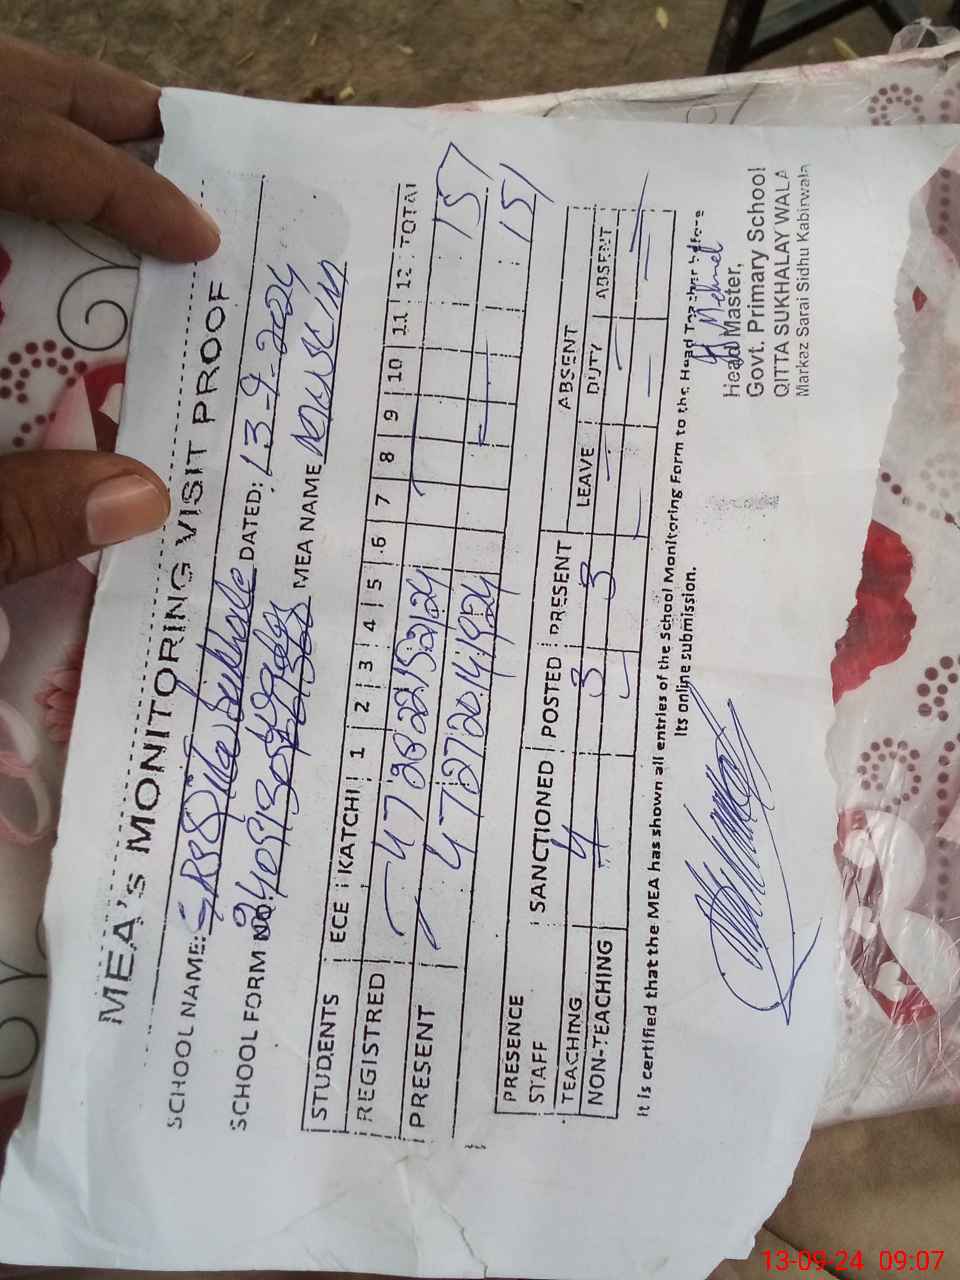 MEA's MONITORING VISIT PROOF
SCHOOL NAME: DATED: 13-9-2024
SCHOOL FORM No. MEA NAME
STUDENTS ECE KATCHI 1 2 3 4 5 6 7 8 9 10 11 12 TOTAL
REGISTRED 47 28 22 15 21 24 157
PRESENT 47 27 20 14 19 24 151
PRESENCE
STAFF SANCTIONED POSTED PRESENT ABSENT
LEAVE DUTY ABSENT
TEACHING 4 3 3
NON-TEACHING
It is certified that the MEA has shown all entries of the School Monitoring Form to the Head Teacher before
Its online submission.
Head Master,
Govt. Primary School
QITTA SUKHALAY WALA
Markaz Sarai Sidhu Kabirwala
13-09-24 09:07